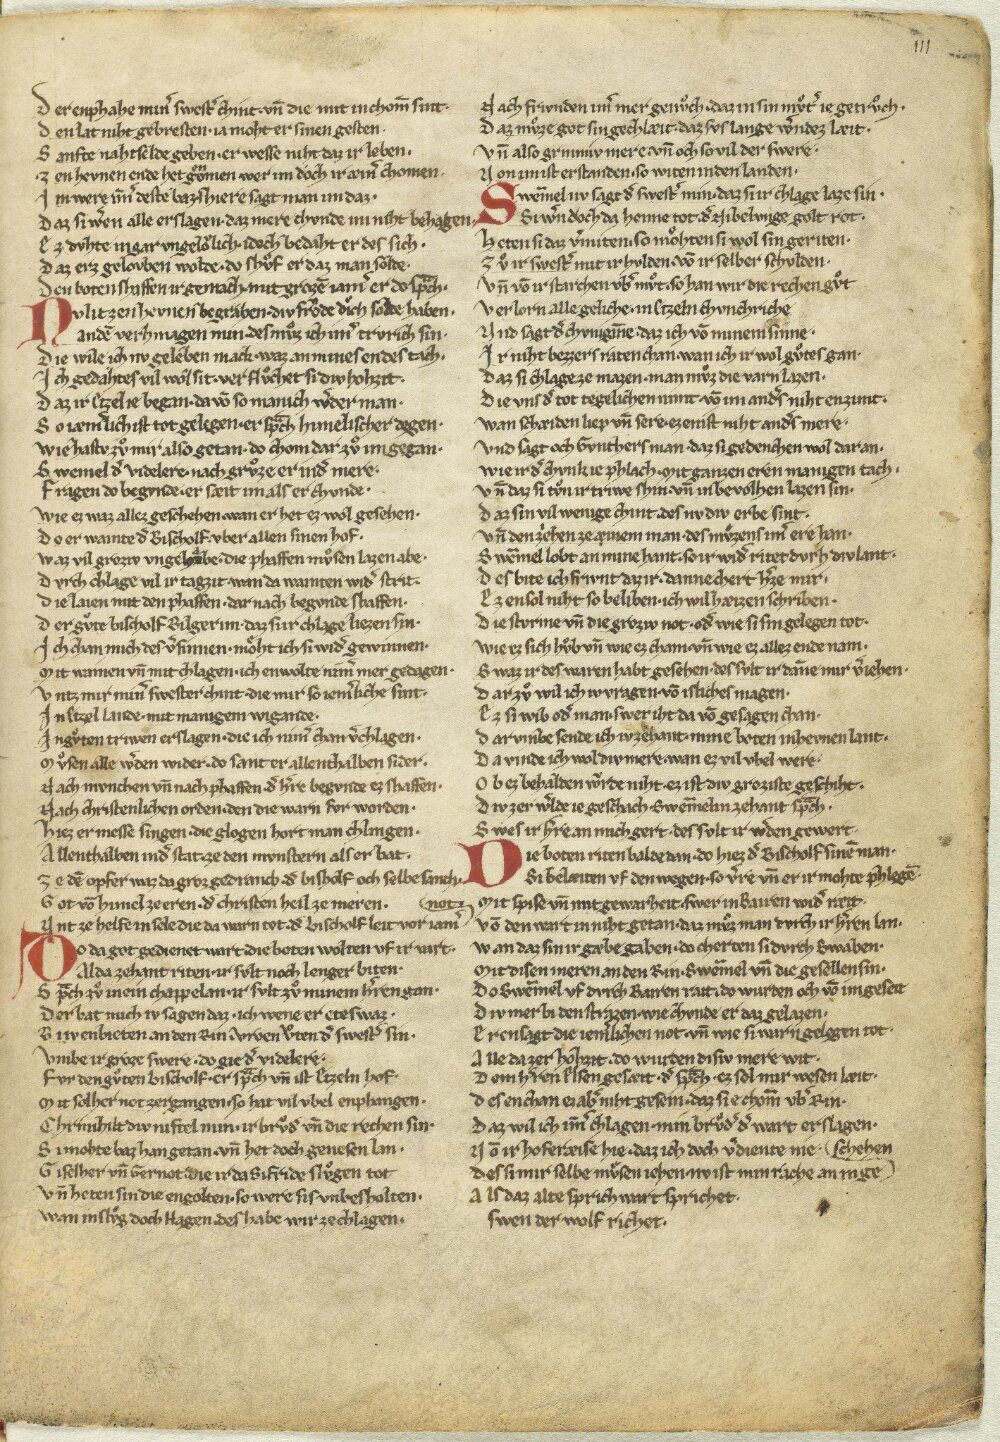 III
Der enphahe miner swest̄ chint · vn̄ die mit in chom̄ sint ·
Den lat niht gebresten · ia moht er sinen gesten ·
Sanfte nahtselde geben · er wesse niht daz ir leben ·
Zen hevnen ende het genomen · wer im doch ir æin̄ chomen ·
In were im̄ deste baz · shiere sagt man im daz ·
Daz si wērn alle erslagen · daz mere chvnde im niht behagen ·
Ez dvhte in gar vngelovblich · idoch bedaht er des sich ·
Daz erz gelovben wolde · do shvͦf er daz man solde ·
Den boten shaffen ir gemach · mit groze iam̄ er do sp̄ch ·
Nv litzen hevnen begraben · div frᷝde dich solde haben ·
ande verhmagen min · des mvͦz ich im̄ trvrich sin ·
Die wile ich nv geleben mack · waz an mines endes tach ·
Ich gedahtes vil wol sit · verflvͦchet si div hohzit ·
Daz ir Etzel ie began · da vō so manich w̄der man ·
So iæm̄lich ist tot gelegen · er sp̄ch himelischer degen ·
wie hastv zvͦ mir also getan · do chom dar zvͦ im gegan ·
Swemel d̄ videlere · nach grvͦze er in d̄ mere ·
Fragen do begvnde · er sæit im als er chvnde ·
wie ez waz allez geschehen · wan er het ez wol gesehen ·
Do er wainte d̄ Bischolf · vber allen sinen hof ·
waz vil groziv vngehabe · die phaffen mvͦsen lazen abe ·
Dvrch chlage vil ir tagzit · wan da wainten wid̄ strit ·
Die laien mit den phaffen · dar nach begvnde shaffen ·
Der gvͦte bischolf Bilgerim · daz si ir chlage liezen sin ·
Ich chan mich des v̄sinnen · moͤht ich si wid̄ gewinnen ·
Mit wainen vn̄ mit chlagen · ich enwolte nim̄ mer gedagen ·
Vntz mir min̄ swester chint · die mir so iem̄liche sint ·
In Etzel lande · mit manigem wigande ·
In gvͦten triwen erslagen · die ich nim̄ chan v̄chlagen ·
Mvͦsen alle w̄den wider · do sant er allenthalben sider ·
Nach mvnchen vn̄ nach phaffen · d̄ h̄re begvnde ez shaffen ·
Nach christenlichen orden · den die warn for worden ·
Hiez er messe singen · die glogen hort man chlingen ·
Allenthalben in d̄ stat · ze den mvnstern als er bat ·
Ze dē opfer waz da groz gedranch · d̄ bisholf och selbe sanch ·
Got vō himel ze eren · d̄ christen heil ze meren · (not ·
Vnt ze helfe in sele die da warn tot · d̄ bischolf leit vor iam̄
Do da got gedienet wart · die boten wolten vf ir vart ·
Alda zehant riten · ir svlt noch lenger biten ·
Sp̄ch zvͦ in ein chappelan · ir svlt zvͦ minem h̄ren gan ·
Der bat mich iv sagen daz · ich wene er eteswaz ·
Biv enbieten an den Rin · Vrven Vten d̄ swest̄ sin ·
Vmbe ir groze swere · do gie d̄ videlere ·
Fvr den gvͦten bischolf · er sp̄ch vn̄ ist Etzeln hof ·
Mit solher not zergangen · so hat vil vbel enphangen ·
Chrimhilt div niftel min · ir brvͦd̄ vn̄ die rechen sin ·
Si mohte baz han getan · vn̄ het doch genesen lan ·
Giselher vn̄ Gernot · die ir da Sifride slvͦgen tot
Vn̄ heten sin die engolten · so were sis vnbesholten ·
wan in slvͦg doch Hagen · des habe wir ze chlagen ·
Nach frivnden im̄ mer genvͦch · daz in sin mvͦt̄ ie getrvͦch ·
Daz mvͦze got sin gechlæit · daz svs lange w̄ndez læit ·
Vn̄ also grimmiv mere · vn̄ och so vil der swere ·
Von im ist erstanden · so witen in den landen ·
Swem̄el nv sagt d̄ swest̄ min · daz si ir chlage laze sin ·
Si w̄n doch da heime tot · d̄ Nibelvnge golt rot ·
Heten si daz v̄miten · so moͤhten si wol sin geriten ·
Zvͦ ir swest̄ mit ir hvlden · vō ir selber schvlden ·
Vn̄ vō ir starchen vb̄ mvͦt · so han wir die rechen gvͦt
Verlorn alle geliche · in Etzeln chvnchriche
Vnd sagt d̄ chvniginne · daz ich vō minem sinne ·
Ir niht bezzers raten chan · wan ich ir wol gvͦtes gan ·
Daz si chlage ze mazen · man mvͦz die varn lazen ·
Die vns d̄ tot tegelichen nimt · wō im and̄s niht enzimt ·
wan schæiden liep vn̄ sere · ez enist niht and̄s mere ·
Vnd sagt och Gvnthers man · daz si gedenchen wol dar an ·
wie ir d̄ chvnk ie phlach · mit ganzen eren manigen tach ·
Vn̄ daz si tvͦn ir triwe shin · vn̄ in bevolhen lazen sin ·
Daz sin vil wenige chint · des nv div erbe sint ·
Vn̄ den ziehen ze æinem man · des mvͦzens im̄ ere han ·
Swem̄el lobt an mine hant · so ir wid̄ ritet dvrh div lant ·
Des bite ich frivnt daz ir · danne chert h̄ze mir ·
Ez ensol niht so beliben · ich wil hæizen schriben ·
Die stvrme vn̄ die groziv not · od̄ wie si sin gelegen tot ·
wie ez sich hvͦb vn̄ wie ez cham · vn̄ wie ez allez ende nam ·
Swaz ir des waren habt gesehen · des svlt ir dan̄e mir v̄iehen ·
Dar zvͦ wil ich iv vragen · vō isliches magen ·
Ez si wib od̄ man · swer iht da vō gesagen chan ·
Darvmbe sende ich iv zehant · mine boten in hevnen lant ·
Da vinde ich wol div mere · wan ez vil vbel were ·
Ob ez behalden w̄rde niht · ez ist div grozziste geshiht ·
Div zer w̄lde ie geschach · Swem̄elin zehant sp̄ch ·
Swes ir h̄re an mich gert · des svlt ir w̄den gewert ·
Die boten riten balde dan · do hiez d̄ Bischolf sinē man ·
Si belæiten vf den wegen · so v̄re vn̄ er ir mohte phlegē ·
Mit spise vn̄ mit gewarheit · swer in Bairen wid̄ reit ·
Vō den wart in niht getan · daz mvͦz man dvrch ir h̄ren lan ·
wan daz sin ir gæbe gaben · do cherten si dvrch Swaben ·
Mit disen meren an den Rin · Swem̄el vn̄ die gesellen sin ·
Do Swem̄el vf dvrch Bairen rait · do wurden och vō im geseit
Div mer bi den strazen · wie chvnde er daz gelazen ·
Ern sagt die iem̄lichen not · vn̄ wie si warn gelegen tot ·
Alle da zer hohzit · do wurden disiv mere wit ·
Dom h̄ren Elsen gesæit · d̄ sp̄ch · ez sol mir wesen læit ·
Des enchan ei ab̄ niht gesein · daz si echom̄ vb̄ Rin ·
Daz wil ich im̄ chlagen · min brvͦd̄ d̄ wart erslagen ·
Vō ir hoferæise hie · daz ich doch v̄diente nie · (schehen
Des si mir selbe mvͦsen iehen · nv ist min rache an in ge)
Als daz alte sprichwart sprichet ·
Swen der wolf richet ·